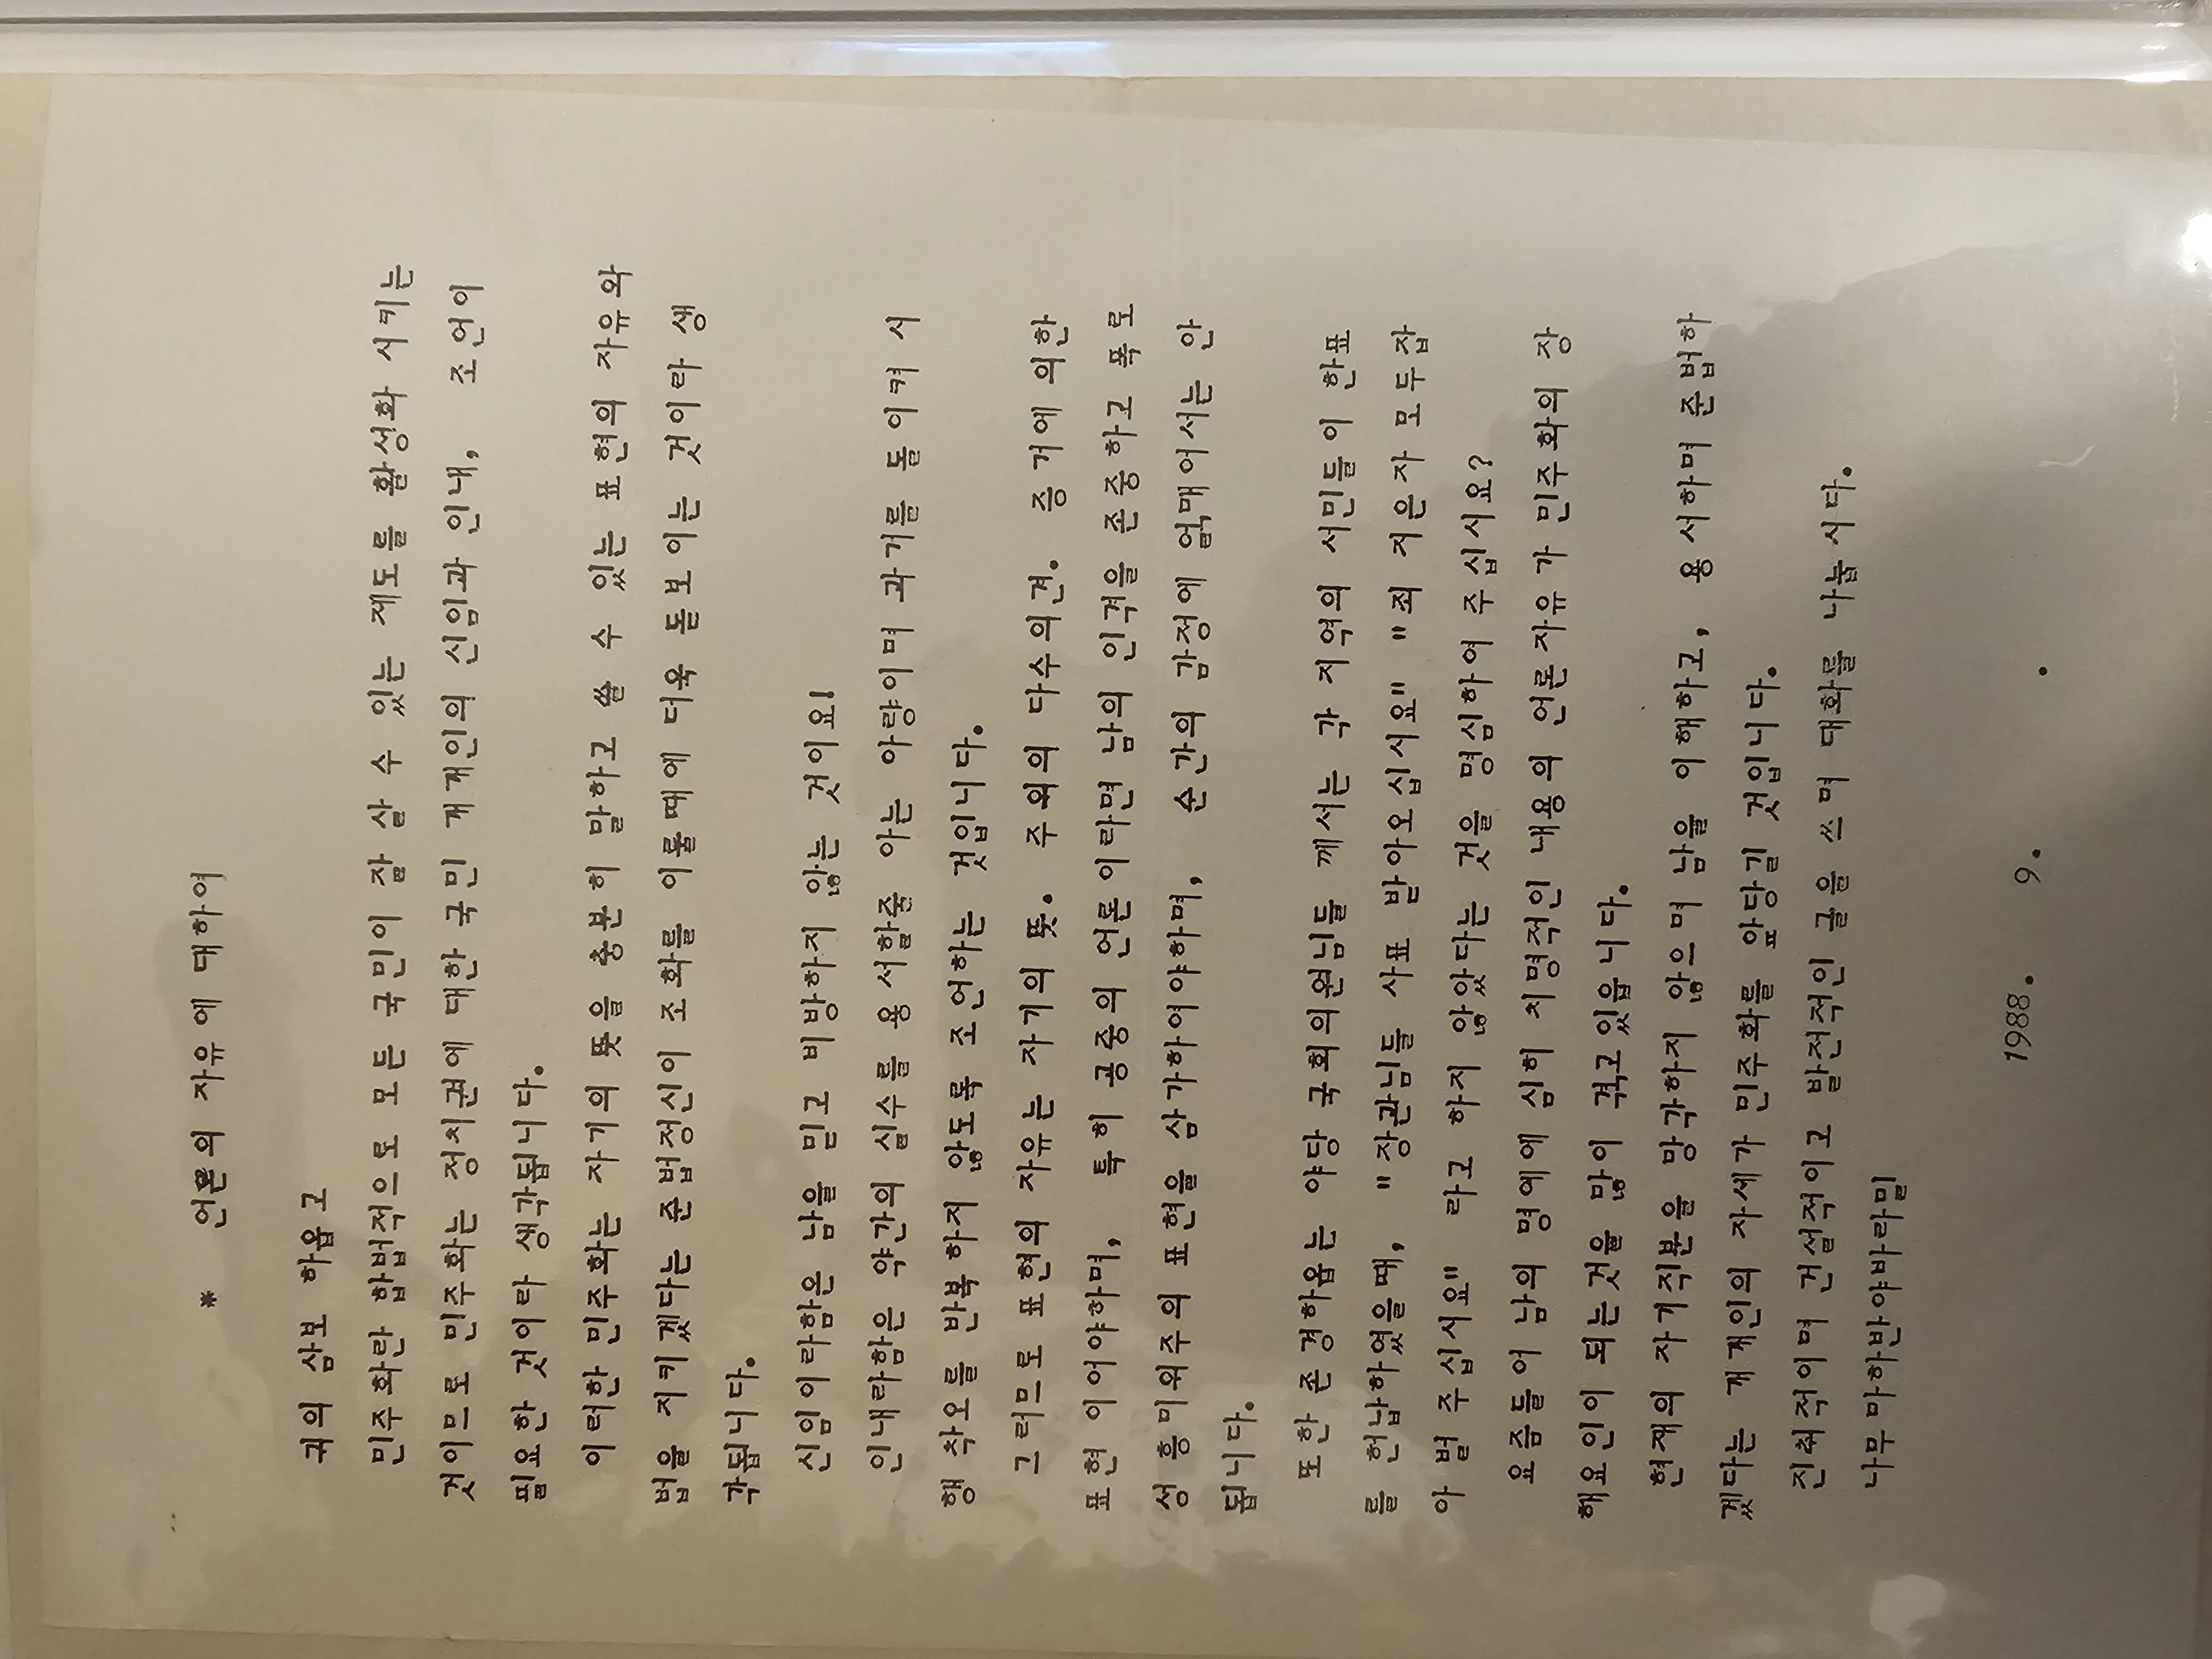 * 언론의 자유에 대하여
귀의 삼보 하옵고
민주화란 합법적으로 모든 국민이 잘 살 수 있는 제도를 활성화 시키는
것이므로 민주화는 정치권에 대한 국민 개개인의 신임과 인내, 조언이
필요한 것이라 생각됩니다.
이러한 민주화는 자기의 뜻을 충분히 말하고 쓸 수 있는 표현의 자유와
법을 지키겠다는 준법정신이 조화를 이룰때에 더욱 돋보이는 것이라 생
각됩니다.
신임이라함은 남을 믿고 비방하지 않는 것이요!
인내라함은 약간의 실수를 용서할줄 아는 아량이며 과거를 돌이켜 시
행 착오를 반복하지 않도록 조언하는 것입니다.
그러므로 표현의 자유는 자기의 뜻. 주위의 다수의견. 증거에 의한
표현 이어야하며, 특히 공중의 언론이라면 남의 인격을 존중하고 폭로
성 흥미위주의 표현을 삼가하여야하며, 순간의 감정에 얽매어서는 안
됩니다.
또한 존경하옵는 야당 국회의원님들 께서는 각 지역의 서민들이 한표
를 헌납하였을때, "장관님들 사표 받아오십시요" "죄 지은자 모두잡
아 벌 주십시요" 라고 하지 않았다는 것을 명심하여 주십시요?
요즘들어 남의 명예에 심히 치명적인 내용의 언론자유가 민주화의 장
해요인이 되는것을 많이 격고있읍니다.
현재의 자기직분을 망각하지 않으며 남을 이해하고, 용서하며 준법하
겠다는 개개인의 자세가 민주화를 앞당길 것입니다.
진취적이며 건설적이고 발전적인 글을 쓰며 대화를 나눕시다.
나무마하반야바라밀
1988. 9. .